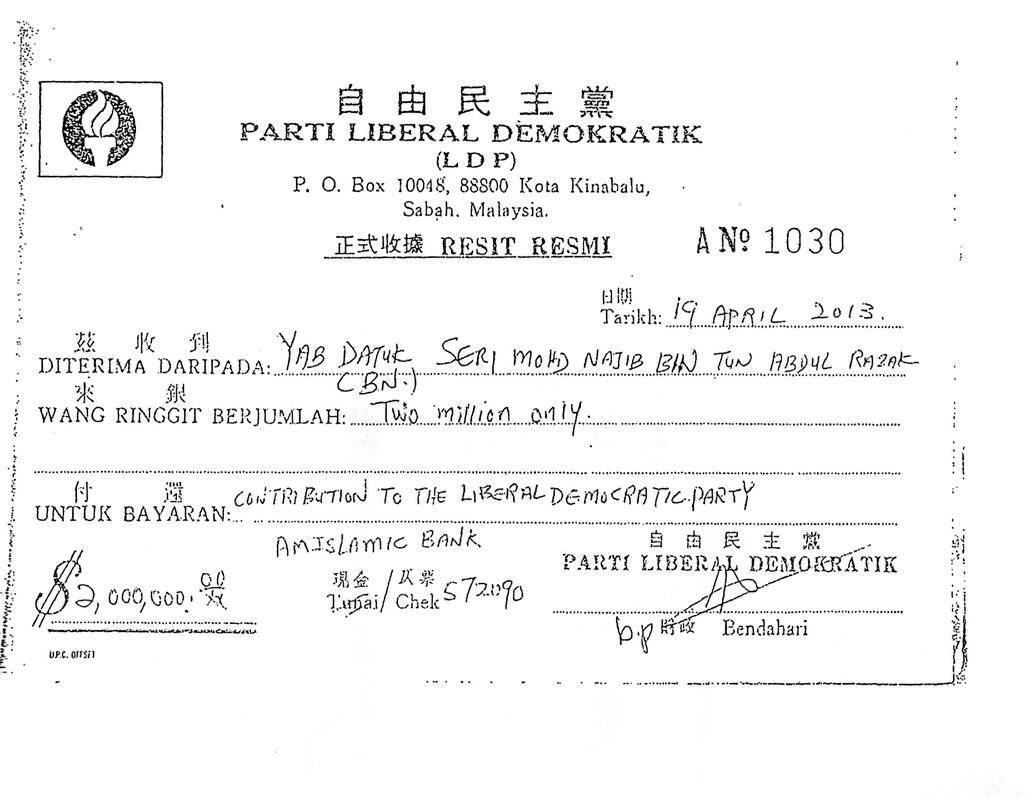 自由民主黨
PARTI LIBERAL DEMOKRATIK
(LDP)
P. O. Box 10048, 88800 Kota Kinabalu,
Sabah. Malaysia.
正式收據 RESIT RESMI
A No 1030
日期
Tarikh: 19 APRIL 2013.
茲收到
DITERIMA DARIPADA: YAB DATUK SERI MOHD NAJIB BIN TUN ABDUL RAZAK
(BN.)
來銀
WANG RINGGIT BERJUMLAH: Two million only.
付還
UNTUK BAYARAN: CONTRIBUTION TO THE LIBERAL DEMOCRATIC PARTY
AMISLAMIC BANK
自由民主黨
PARTI LIBERAL DEMOKRATIK
$2,000,000.00
現金/仄票
Tunai/Chek 572090
b.p 財政 Bendahari
U.P.C. OFFSET